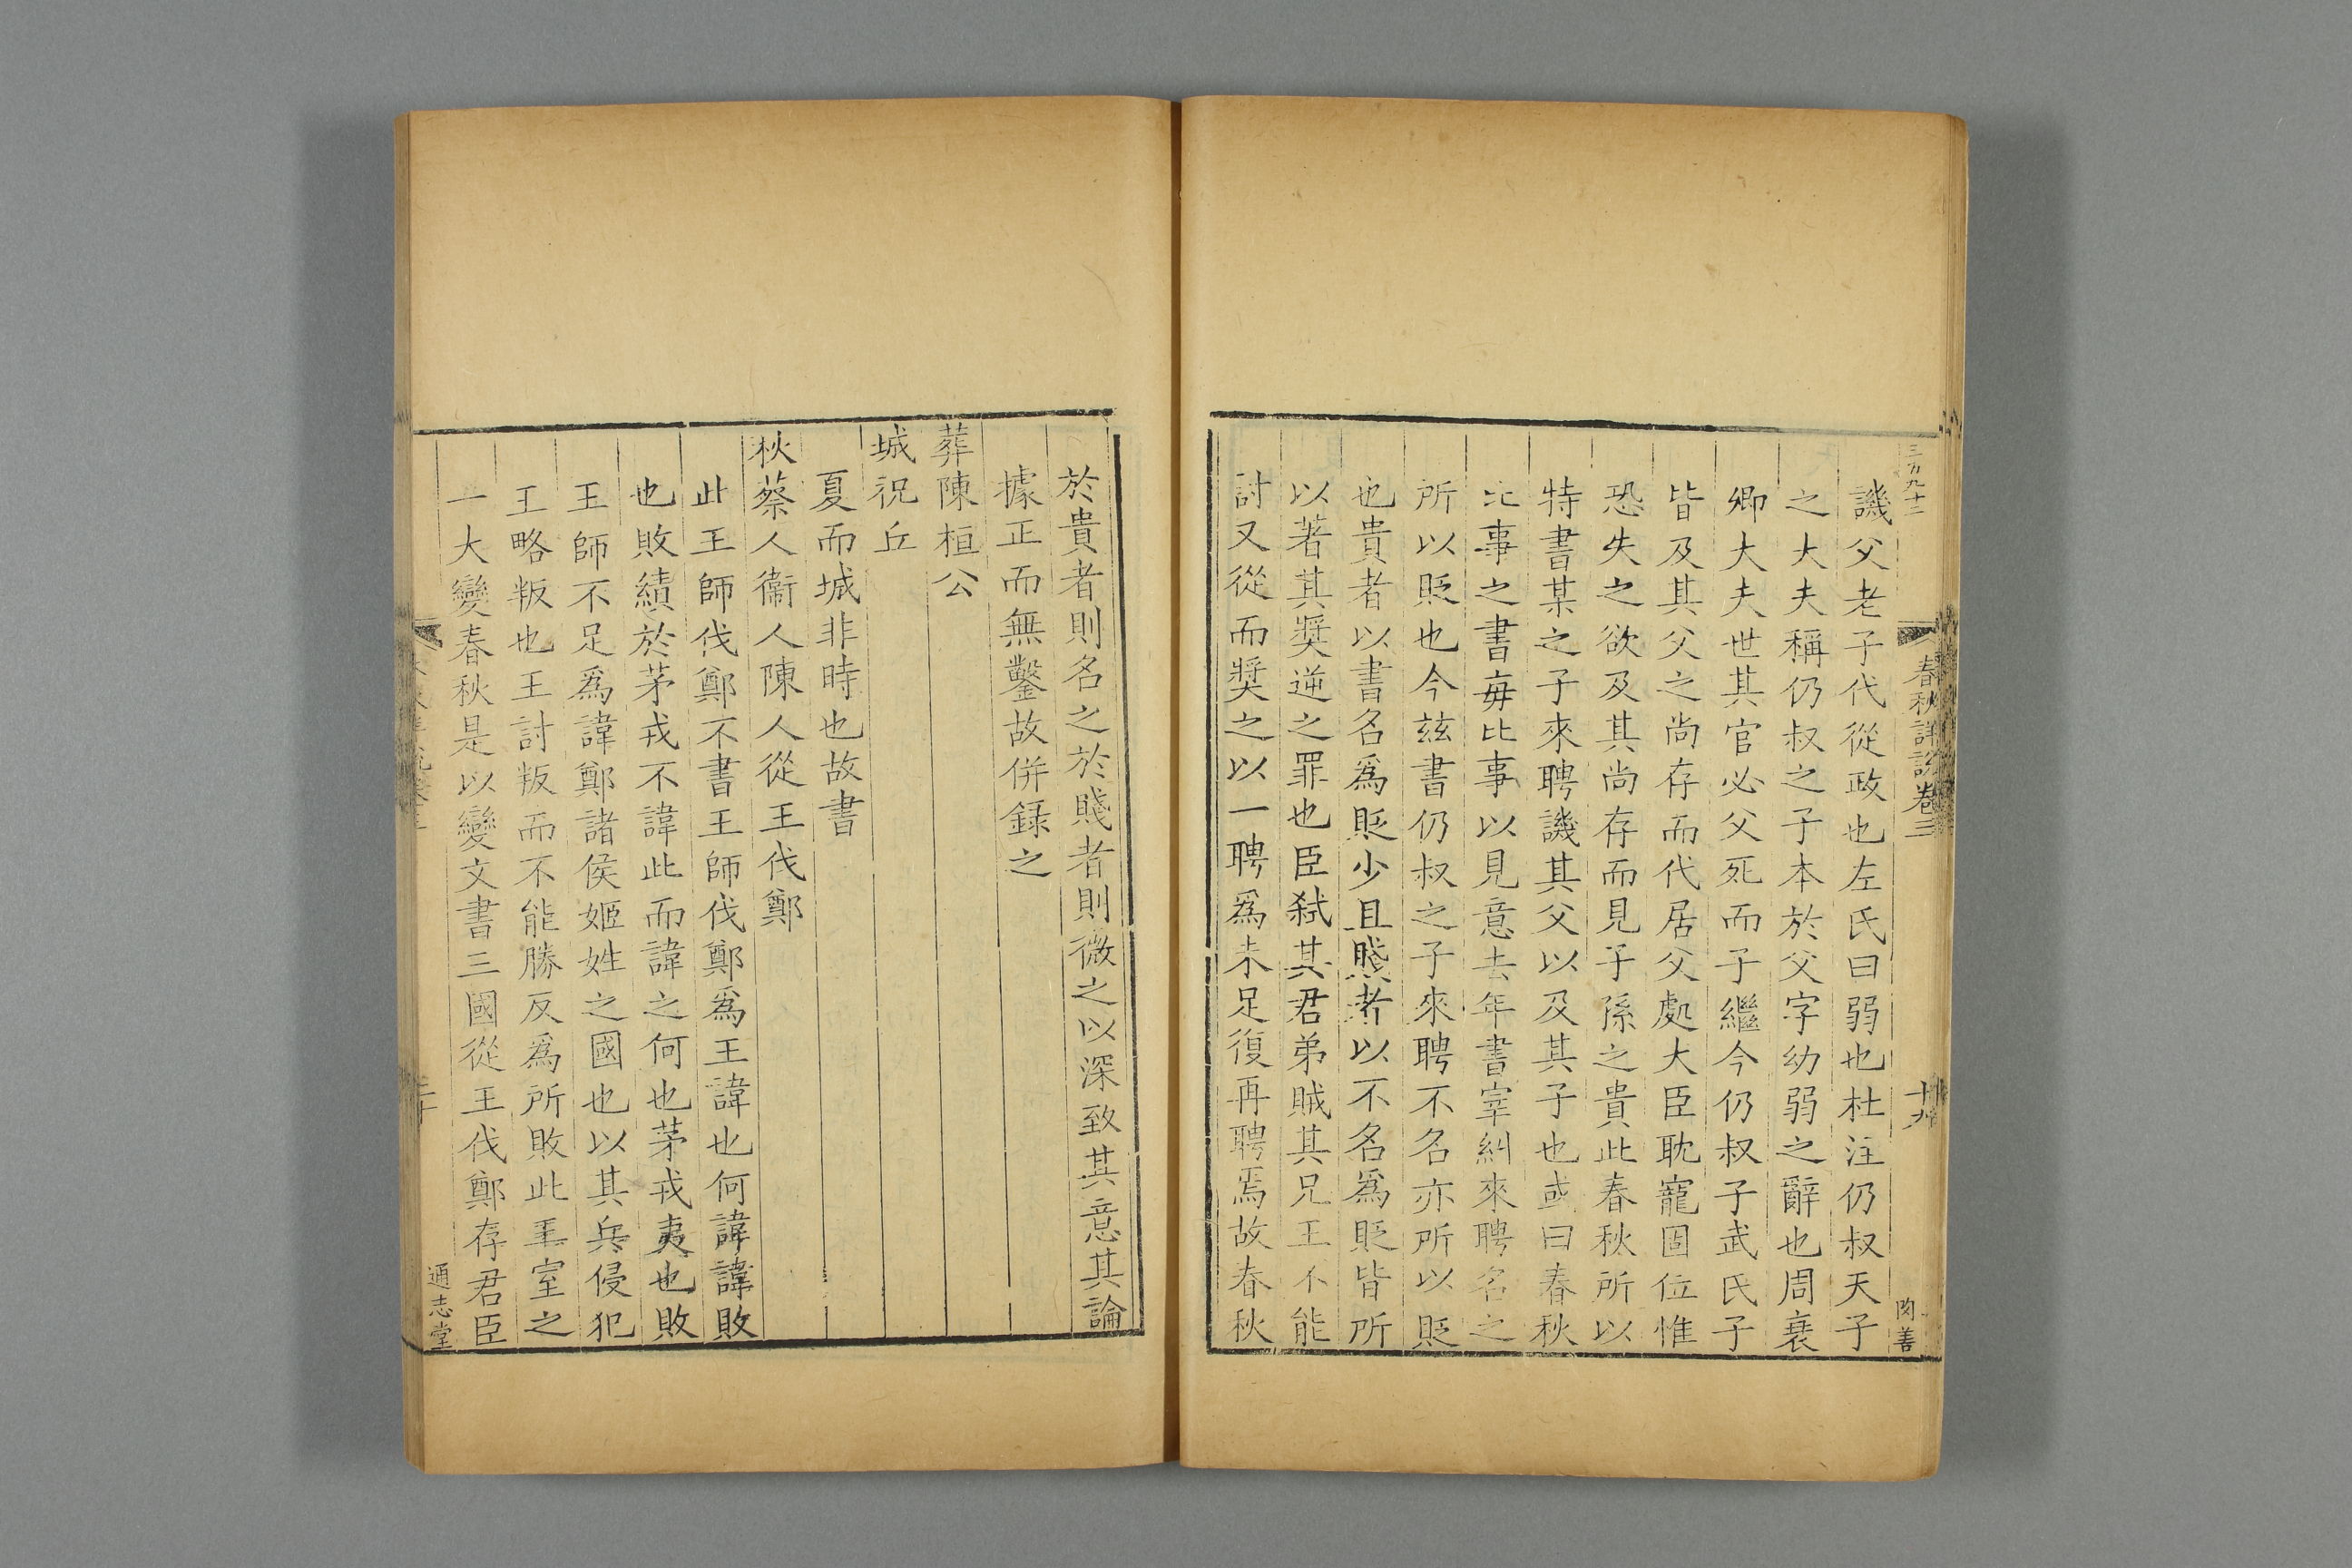 春秋詳說卷三
十九
譏父老子代從政也左氏曰弱也杜注仍叔天子
之大夫稱仍叔之子本於父字幼弱之辭也周衰
卿大夫世其官必父死而子繼今仍叔子武氏子
皆及其父之尚存而代居父處大臣耽寵固位惟
恐失之欲及其尚存而見子孫之貴此春秋所以
特書某之子來聘譏其父以及其子也或曰春秋
比事之書毎比事以見意去年書宰糾來聘名之
所以貶也今兹書仍叔之子來聘不名亦所以貶
也貴者以書名爲貶少且賤者以不名爲貶皆所
以著其奬逆之罪也臣弑其君弟賊其兄王不能
討又從而奬之以一聘爲未足復再聘焉故春秋
於貴者則名之於賤者則微之以深致其意其論
據正而無鑿故併録之
葬陳桓公
城祝丘
夏而城非時也故書
秋蔡人衞人陳人從王伐鄭
此王師伐鄭不書王師伐鄭爲王諱也何諱諱敗
也敗績於茅戎不諱此而諱之何也茅戎夷也敗
王師不足爲諱鄭諸侯姬姓之國也以其兵侵犯
王略叛也王討叛而不能勝反爲所敗此王室之
一大變春秋是以變文書三國從王伐鄭存君臣
通志堂